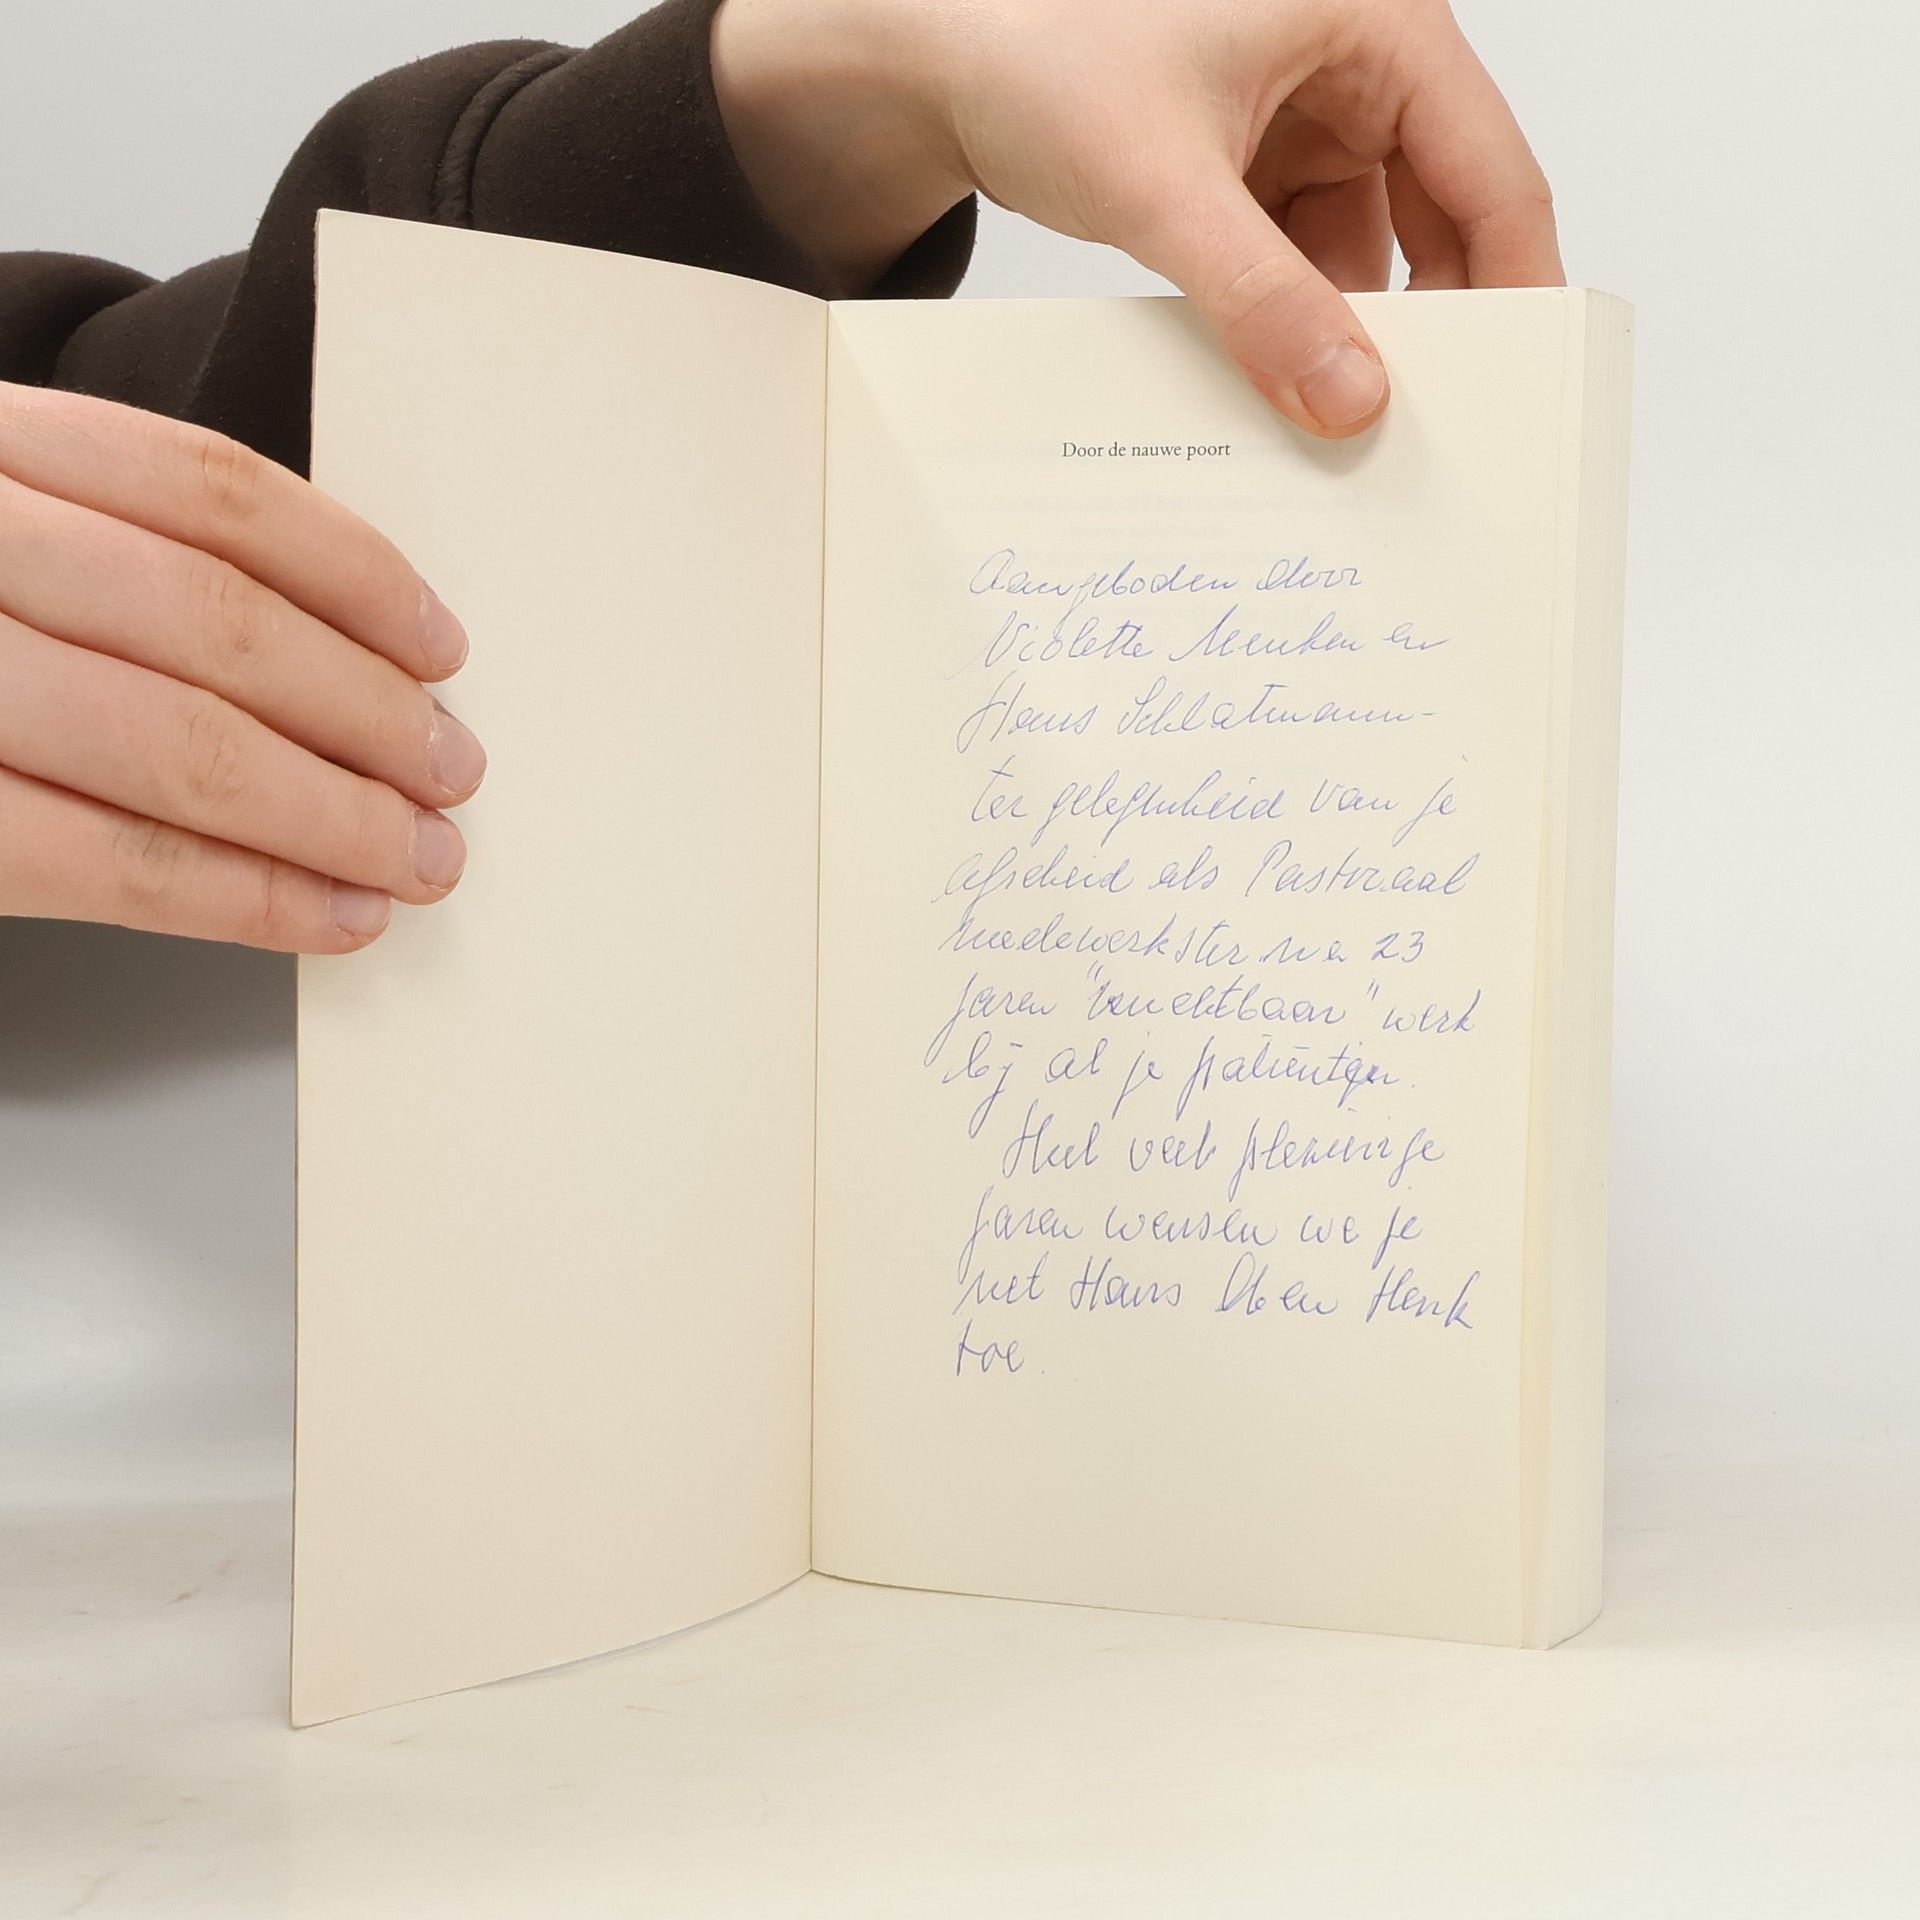 Door de nauwe poort
Aangeboden door
Violette Menken en
Hans Schlatmann-
ter gelegenheid van je
afscheid als Pastoraal
medewerkster na 23
jaren "vruchtbaar" werk
bij al je patiënten.
Heel veel plezierige
jaren wensen we je
met Hans en Henk
toe.